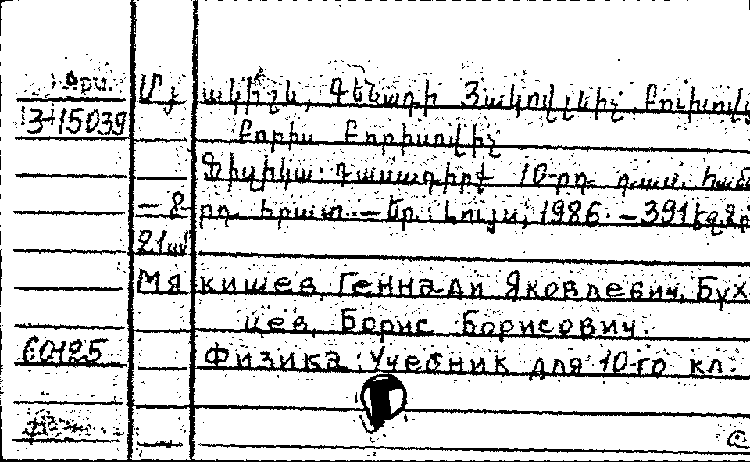 Մյ ակիշև, Գենադի Յակովլևիչ, Բուխով
3-15039
Բորիս Բորիսովիչ
Ֆիզիկա: Դասագիրք 10-րդ դաս. համ
— 2 րդ հրատ. — Եր.: Լույս, 1986. – 391 էջ.
21 սմ
Мя кишев, Геннади Яковлевич, Бух
цев, Борис Борисович.
60125 Физика: Учебник для 10-го кл.